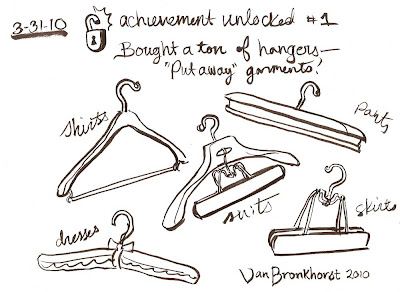 3-31-10
achievement unlocked #1
Bought a ton of hangers—
"Put away" garments!
shirts
pants
suits
skirts
dresses
VanBronkhorst 2010